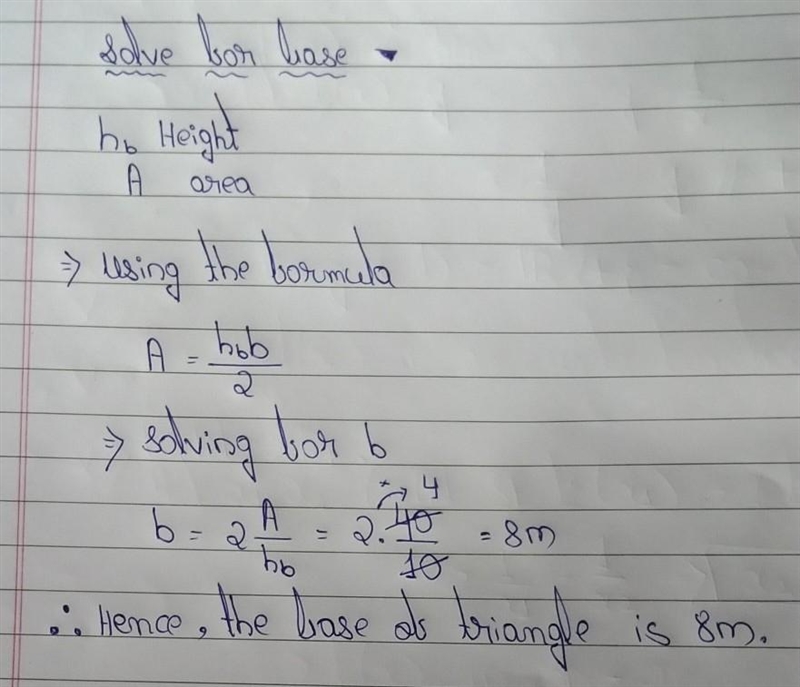 solve for base -
h_b Height
A area
⇒ using the formula
A = h_b b / 2
⇒ solving for b
b = 2 A / h_b = 2 . 40 / 10 → 4 = 8m
∴ Hence, the base of triangle is 8m.